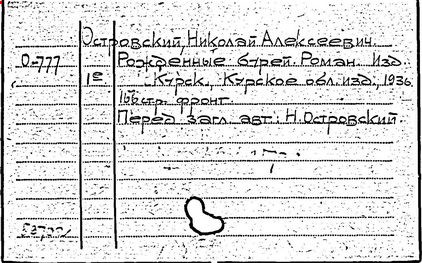 Островский, Николай Алексеевич.
О-777 Рожденные бурей. Роман. Изд.
1е Курск, Курское обл. изд., 1936
166 стр. фронт.
Перед загл. авт: Н. Островский